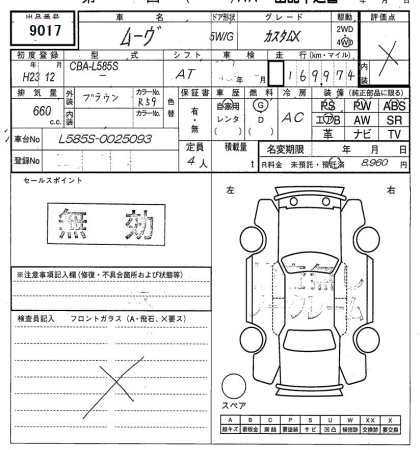 出品番号 車名 ドア形状 グレード 駆動 評価点
9017 ムーヴ 5W/G カスタムX 2WD 4WD
初度登録 型式 シフト 車検 走行(km・マイル) 内装
H23 12 CBA-L585S AT 年 月 169974
排気量 外装 ブラウン カラーNo. R59 色替 保証書 車歴 燃料 冷房 装備(純正部品に限る)
660 c.c. 内装 カラーNo. 有・無 自家用 レンタ ( ) G D ( ) AC PS PW ABS
エアB AW SR
革 ナビ TV
車台No L585S-0025093 定員 積載量 名変期限 年 月 日
登録No 4人 t R料金 未預託・預託済 8,960 円
セールスポイント 左 右
無効
※注意事項記入欄(修復・不具合箇所および状態等)
検査員記入 フロントガラス(A・飛石、×要ス)
スペア
A B C P S U W XX X
線キズ 要板金 腐蝕 要塗装 サビ 凹凸 補修跡 交換跡 要交換